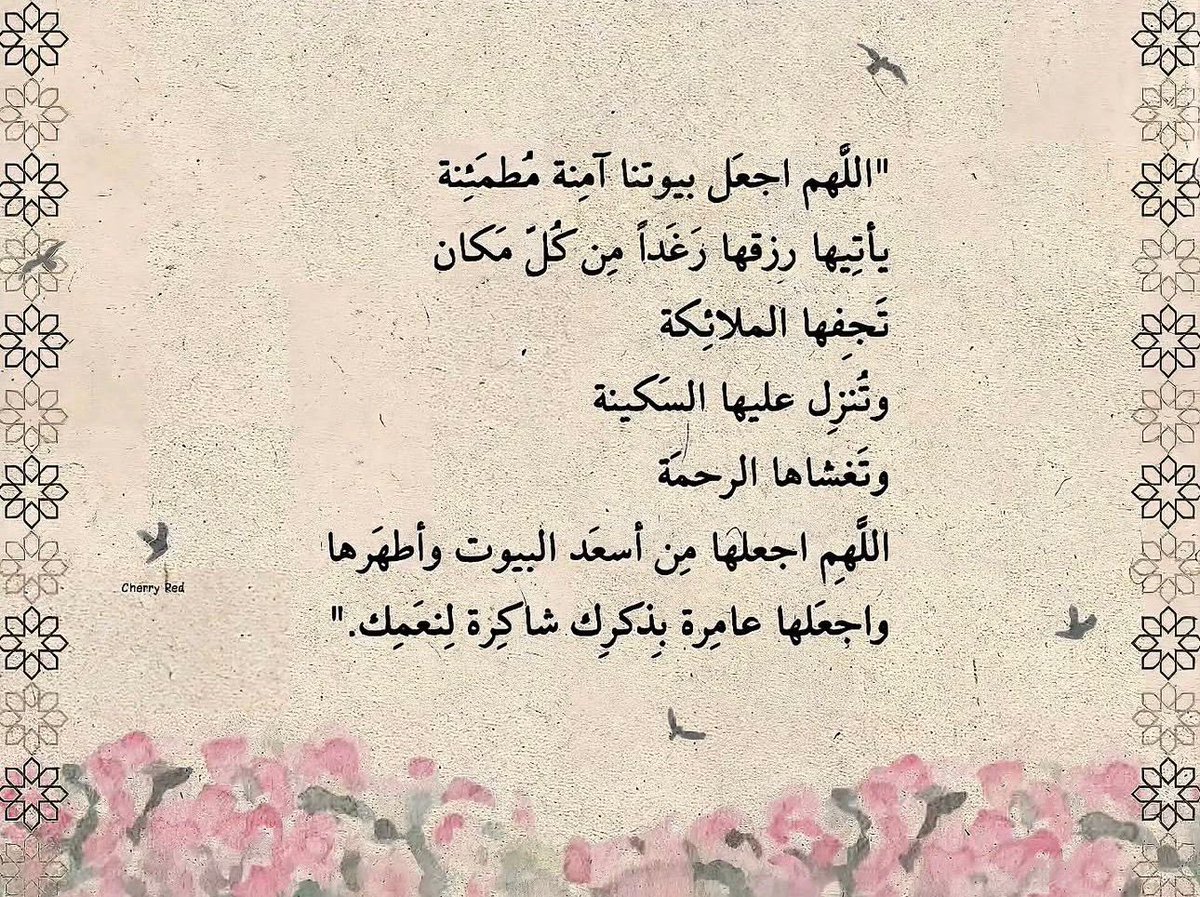 "اللَّهم اجعَل بيوتنا آمِنة مُطمَئِنة
يأتِيها رزقها رَغَداً مِن كُلّ مَكان
تَحِفها الملائِكة
وتُنزِل عليها السَكينة
وتَغشاها الرحمَة
اللَّهِم اجعلها مِن أسعَد البيوت وأطهَرها
واجعَلها عامِرة بِذكرِك شاكِرة لِنعَمِك."
Cherry Red